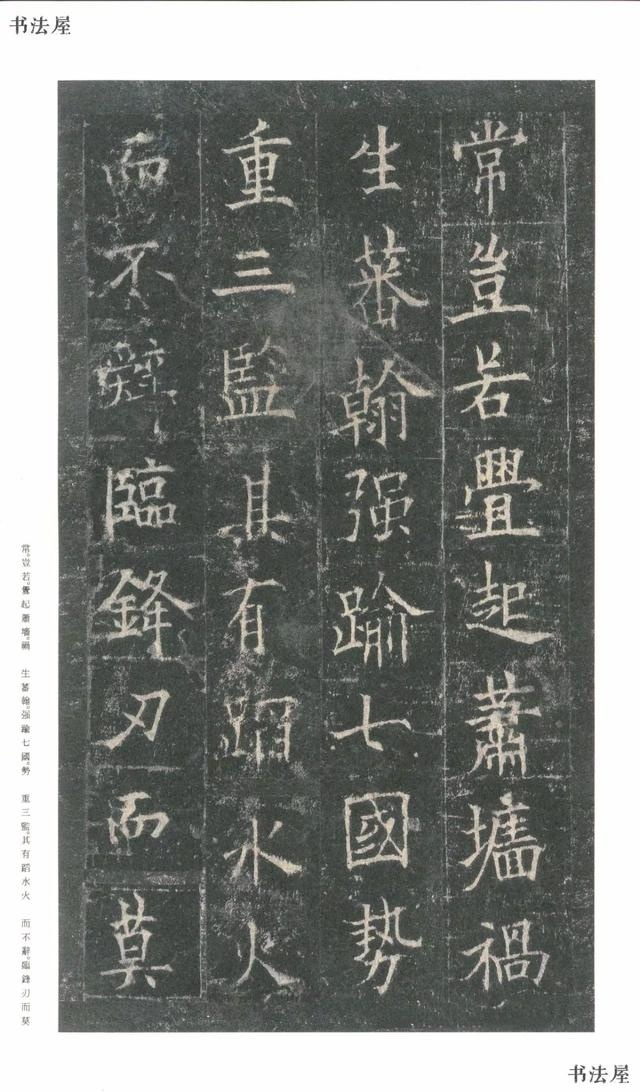 书法屋
常豈若舋起蕭墻禍
生蕃翰强踰七國勢
重三監其有蹈水火
而不辭臨鋒刃而莫
常豈若舋起蕭墻禍 生蕃翰强踰七國勢 重三監其有蹈水火 而不辭臨鋒刃而莫
书法屋